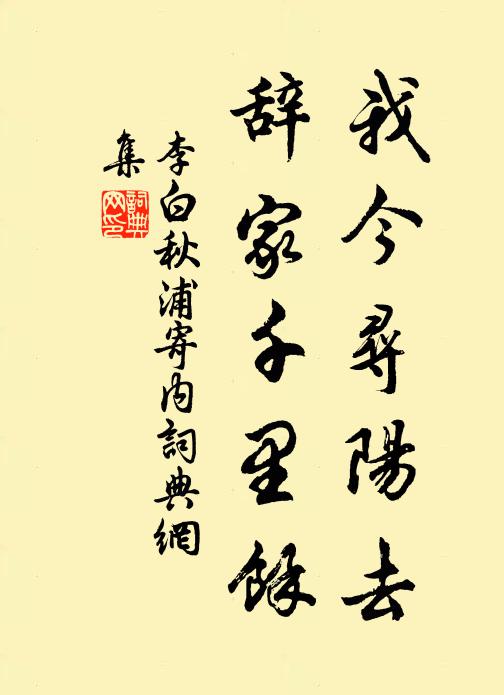 我今尋陽去
辞家千里餘
李白秋浦寄内詞典網
集
詞典
网印